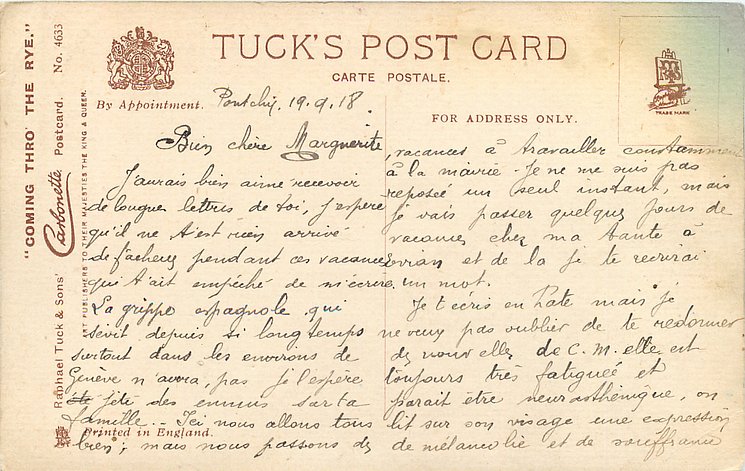 "COMING THRO' THE RYE."
Raphael Tuck & Sons' Carbonette Postcard. No. 4633
ART PUBLISHERS TO THEIR MAJESTIES THE KING & QUEEN.
TUCK'S POST CARD
CARTE POSTALE.
By Appointment.
FOR ADDRESS ONLY.
TRADE MARK
19.9.18
Bien chère Marguerite,
J'aurais bien aimé recevoir
de longues lettres de toi, j'espère
qu'il ne t'est rien arrivé
de facheux pendant ces vacances
qui t'ait empéché de m'écrire.
La grippe espagnole qui
sévit depuis si longtemps
surtout dans les environs de
Genève n'aura, pas je l'espère
jeté des ennuis sur ta
famille.. Ici nous allons tous
bien; mais nous passons des
vacances à travailler constamment
à la mairie. Je ne me suis pas
reposée un seul instant, mais
je vais passer quelques jours de
vacances chez ma tante à
et de la je te recrirai
un mot.
Je t'écris en hate mais je
ne veux pas oublier de te redonner
des nouvelles de C. M. elle est
toujours très fatiguée et
parait être neurasthénique, on
lit sur son visage une expression
de mélancolie et de souffrance
Printed in England.